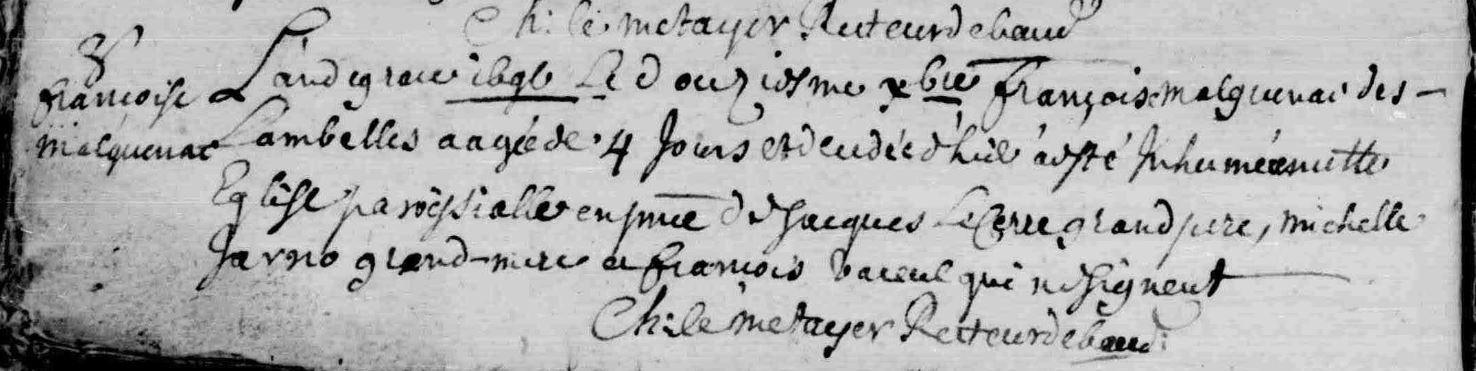 Ch: le metayer Recteur de baud
françoise malguenac
L'an de grace le douziesme xbre françoise malguenac des
Lambelles aagée de 4 Jours et decedée d'hier a esté Inhumée en cette
Eglise paroissialle en pnce de Jacques grand pere, michelle
Jarno grand-mere et francois qui ne signent
Ch: le metayer Recteur de baud: